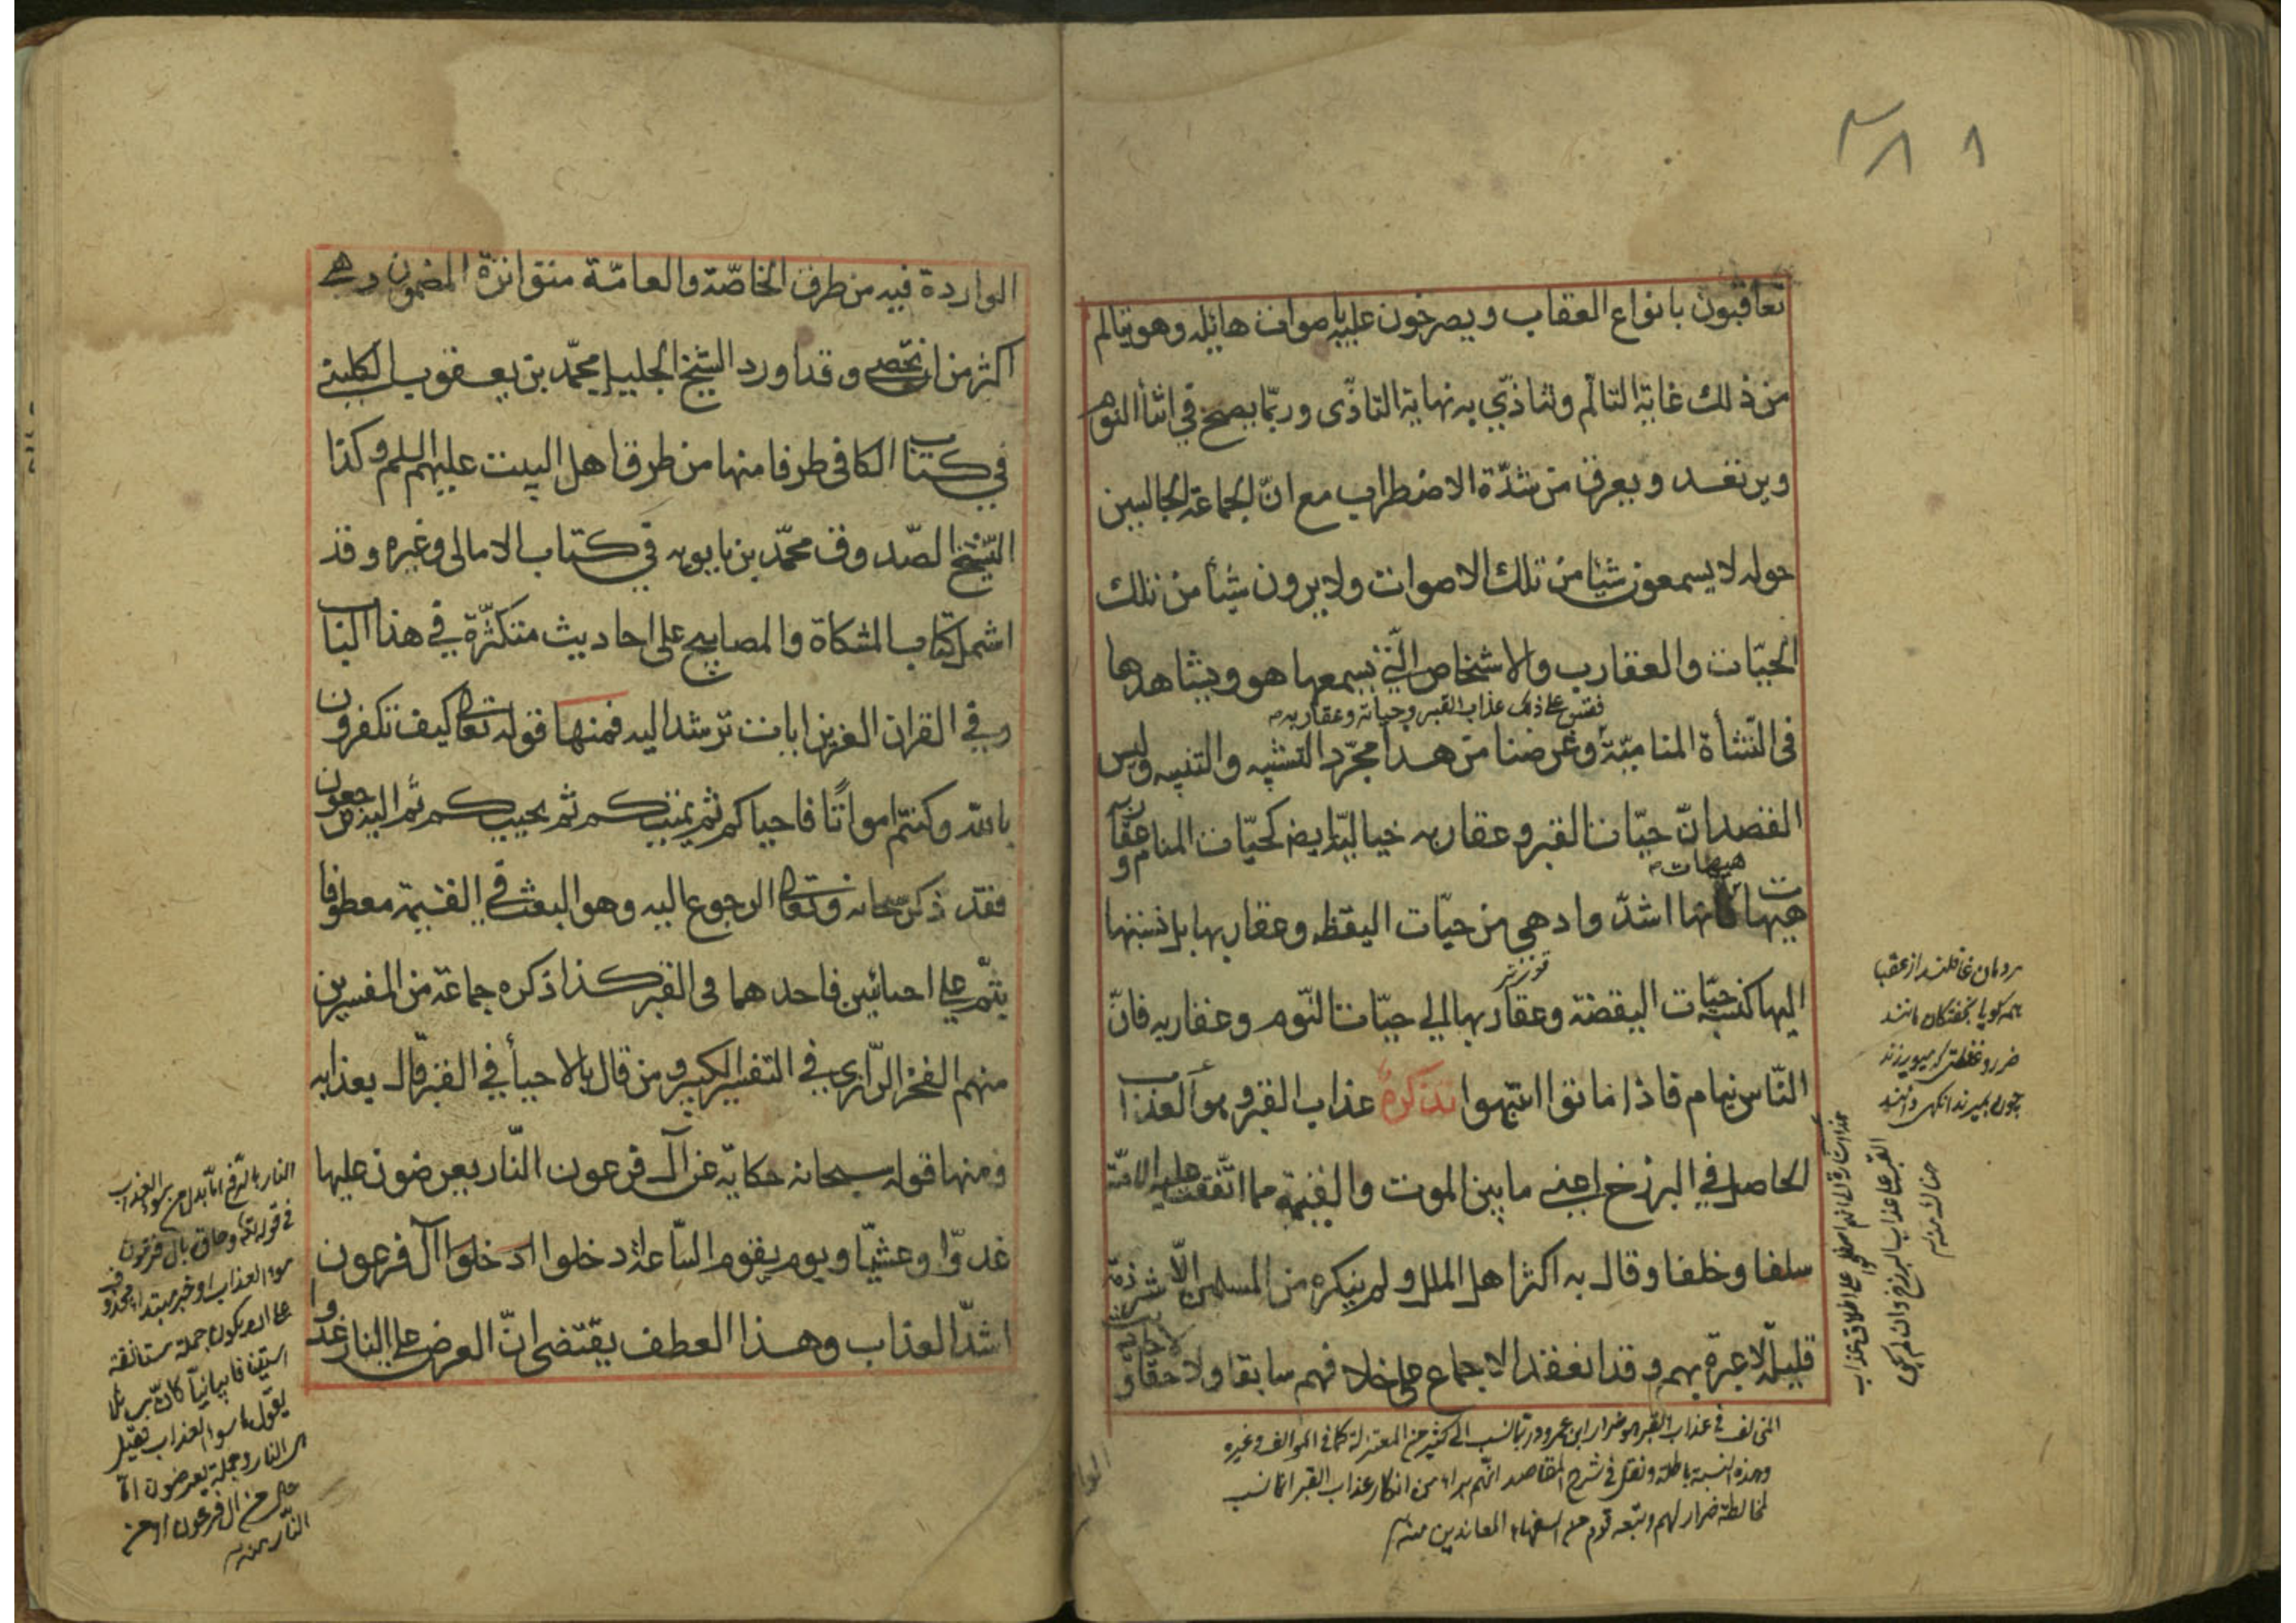 ٨
تعاقبون بانواع العقاب ويصرخون عليه باصوات هايله وهو يتالم
من ذلك غاية التالّم ويتاذّي به نهاية التاذّى وربّما يصيح في اثنأ النوم
ويرتعد ويعرق من شدّة الاضطراب مع انّ الجماعة الجالسين
حوله لا يسمعون شيأ من تلك الاصوات ولا يرون شيأ من تلك
الحيّات والعقارب والاشخاص الّتي يسمعها هو ويشاهدها
فقس على ذلك عذاب القبر وحياته وعقاربه
فى النّشأة المناميّة وغرضنا من هذا مجرّد التشبيه والتنبيه وليس
القصد انّ حيّات القبر وعقاربه خياليّة ايضا كحيّات المنام وعقاربه
هيهات
هيهات فانها اشدّ وادهى من حيّات اليقظه وعقاربها بل نسبتها
اليها كنسبة حيّات اليقضة وعقاربها الي حيّات النّوم وعقاربه فانّ
النّاس نيام فاذا ماتوا انتبهوا تذكرة عذاب القبر وهو العذاب
الحاصل في البرزخ اعني ما بين الموت والقيمة مما اتّفقت عليه الامّة
سلفا وخلفا وقال به اكثر اهل الملل ولم ينكره من المسلمين الّا شرذمة
قليلة لا عبرة بهم وقد انعقد الاجماع على خلافهم سابقا ولاحقا و
الاحاديث
مردمان غافلند از عقبا
همه گويا بخفتگان مانند
ضرر غفلتى كه ميورزند
چون بميرند آنگهى دانند
المخالف في عذاب القبر هو ضرار ابن عمرو وربّما نسب الى كثير من المعتزلة كما في المواقف وغيره
وهذه النسبة باطلة ونقل في شرح المقاصد انّهم براء من انكار عذاب القبر انما نسب
لمخالطة ضرار لهم وتبعه قوم من السفهاء المعاندين منه
الوا
الواردة فيه من طرق الخاصّة والعامّة متواترة المضمون وهى
اكثر من ان تحصى وقد اورد الشيخ الجليل محمّد بن يعقوب الكليني
في كتاب الكافى طرفا منها من طرق اهل البيت عليهم السلم وكذا
الشيخ الصّدوق محمّد بن بابويه في كتاب الامالى وغيره وقد
اشمل كتاب المشكاة والمصابيح على احاديث متكثّرة في هذا الباب
وفي القران العزيز ايات ترشد اليه فمنها قوله تعالى كيف تكفرون
بالله وكنتم امواتًا فاحياكم ثم يميتكم ثم يحييكم ثم اليه ترجعون
فقد ذكر سبحانه وتعالى الرجوع اليه وهو البعث في القيمة معطوفا
بثمّ على احيائين فاحدهما فى القبر كذا ذكره جماعة من المفسرين
منهم الفخر الرّازي في التفسير الكبير ومن قال بالاحيأ في القبر قال بعذابه
ومنها قوله سبحانه حكاية عن آل فرعون النّار يعرضون عليها
غدوّا وعشيّا ويوم يقوم السّاعة دخلوا ادخلوا آل فرعون
اشدّ العذاب وهذا العطف يقتضى انّ العرض على النار غدوا و
النار بالرّفع امّا بدل من سوء العذاب
في قوله تعالى وحاق بال فرعون
سوء العذاب او خبر مبتداء محذوف
على ان يكون جملة مستانفة
استينافا بيانيّا كانّه
يقول ما سوء العذاب فقيل
هى النار وجملة يعرضون امّا
حال من ال فرعون او من
النّار منه